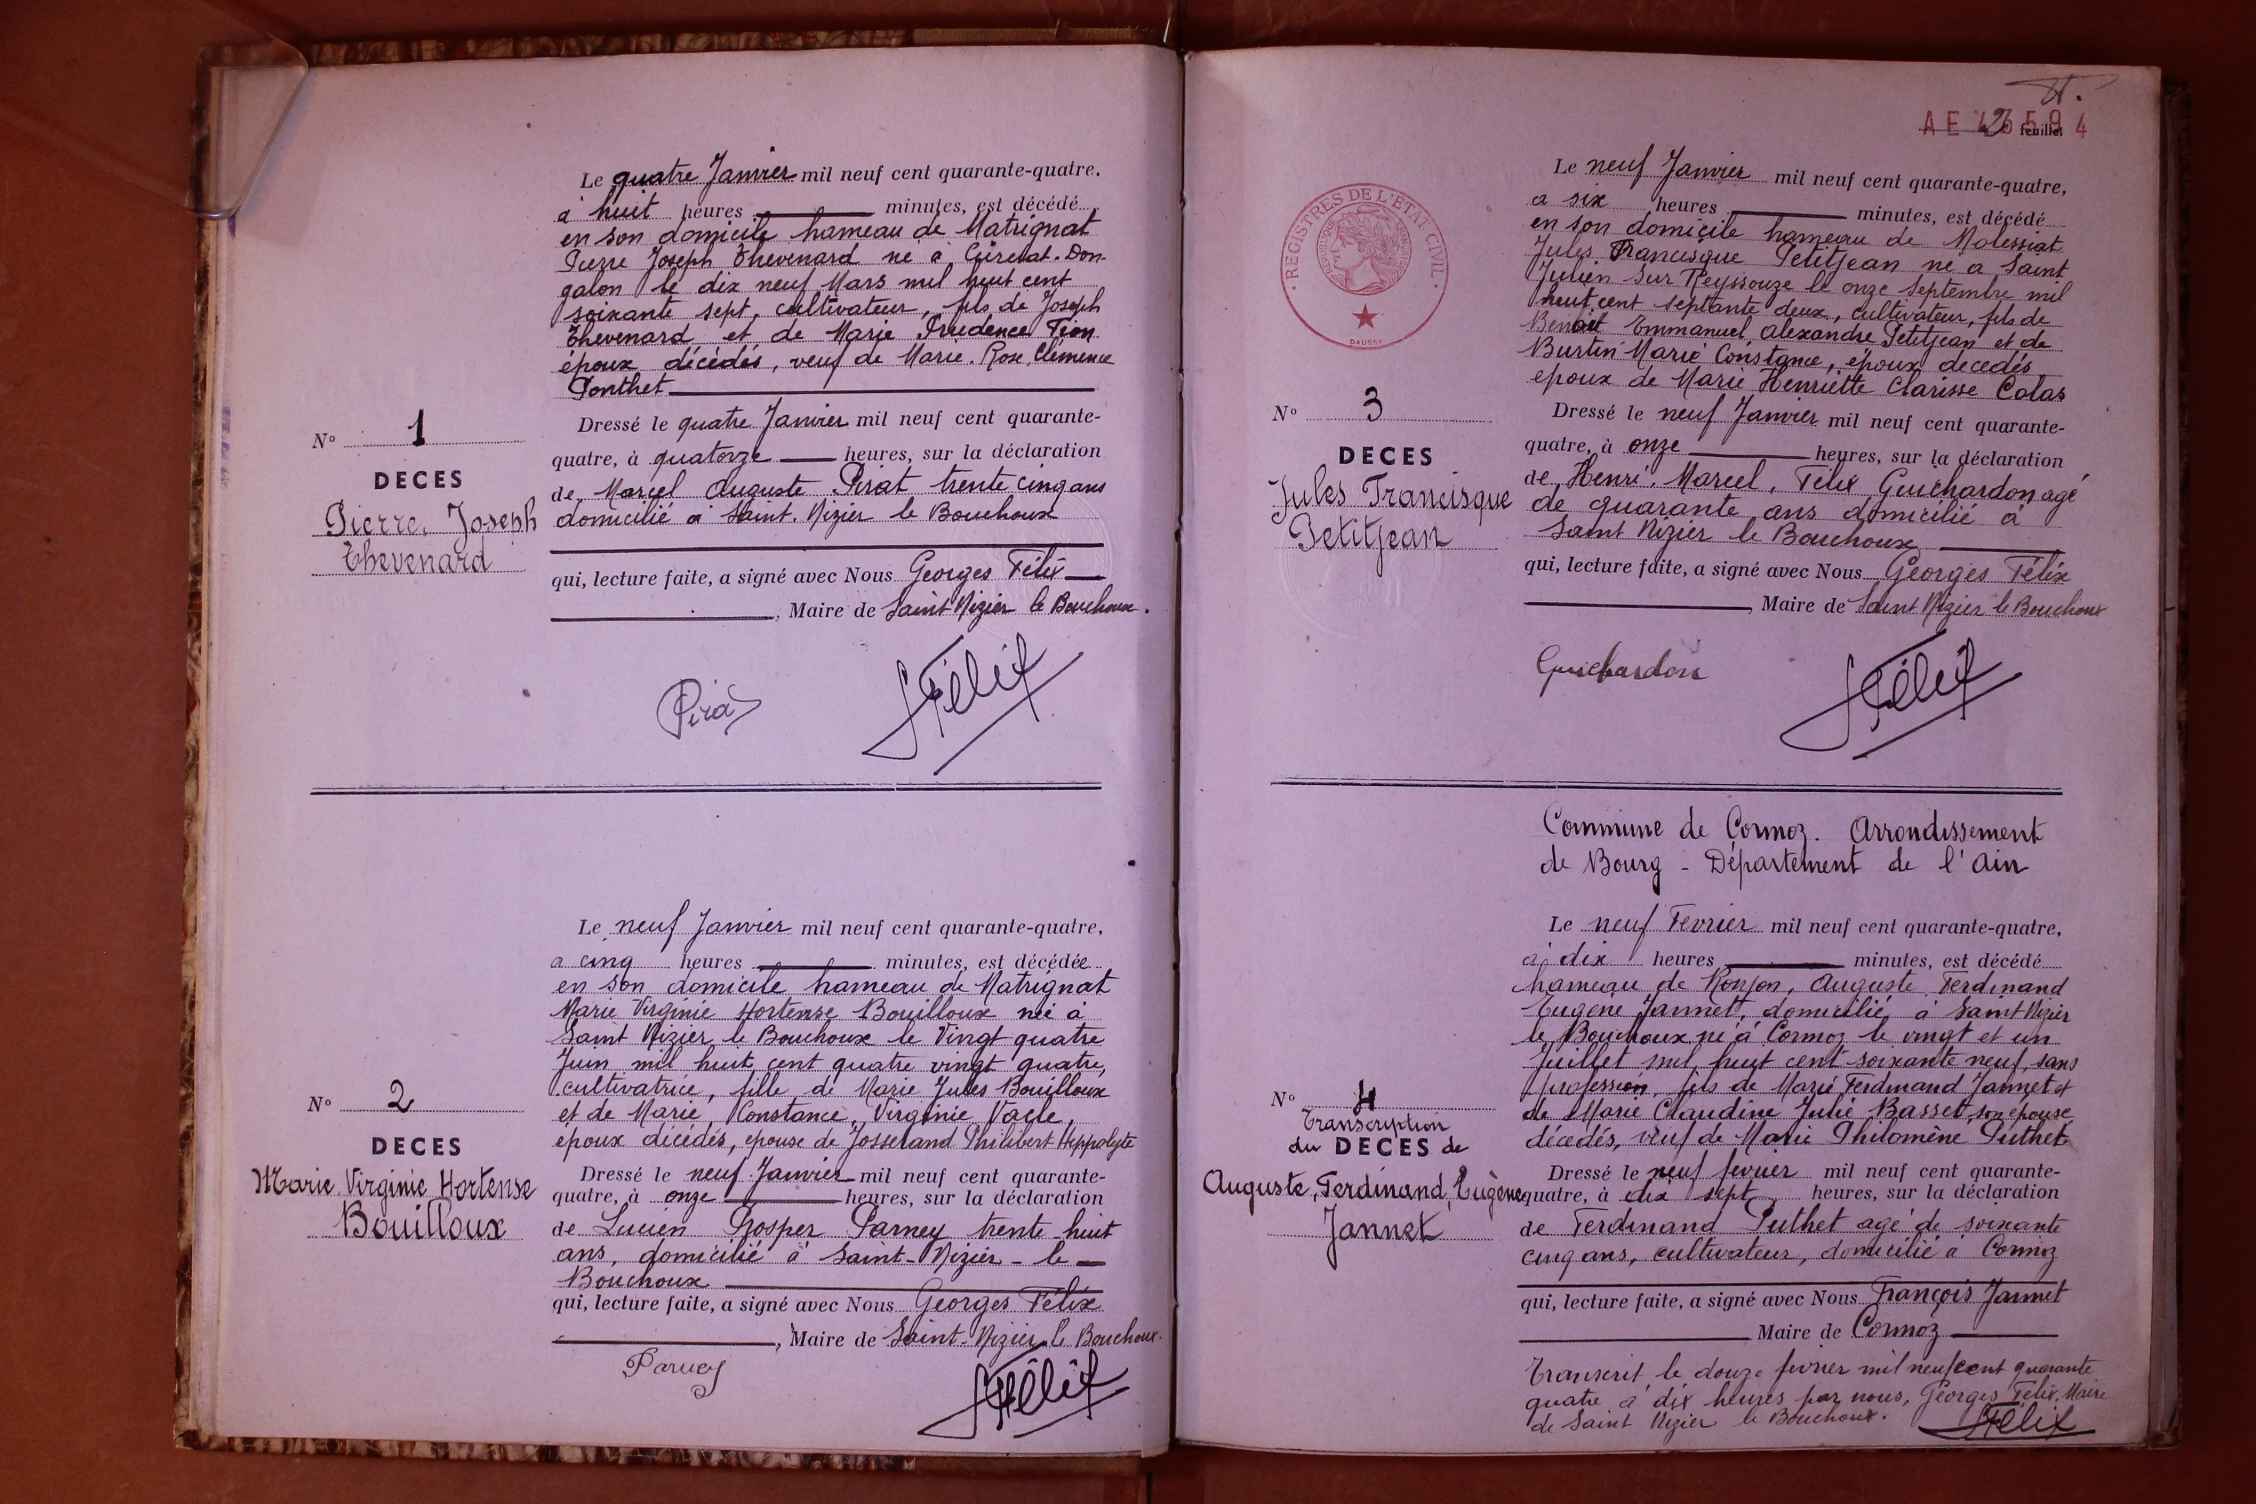 Le quatre Janvier mil neuf cent quarante-quatre.
à huit heures minutes, est décédé
en son domicile hameau de Matrignat
Pierre Joseph Thevenard né à Curciat-Don-
galon le dix neuf Mars mil huit cent
soixante sept, cultivateur, fils de Joseph
Thevenard et de Marie Prudence Tion
époux décédés, veuf de Marie-Rose Clémence
Ponthet
Nº 1
DECES
Pierre, Joseph
Thevenard
Dressé le quatre Janvier mil neuf cent quarante-
quatre, à quatorze heures, sur la déclaration
de Marcel Auguste Pirat trente cinq ans
domicilié à Saint-Nizier le Bouchoux
qui, lecture faite, a signé avec Nous Georges Félix
, Maire de Saint Nizier le Bouchoux.
Pirat
GFélix
Le neuf Janvier mil neuf cent quarante-quatre,
à cinq heures minutes, est décédée
en son domicile hameau de Matrignat
Marie Virginie Hortense Bouilloux née à
Saint Nizier le Bouchoux le Vingt quatre
Juin mil huit cent quatre vingt quatre,
cultivatrice, fille de Marie Jules Bouilloux
et de Marie, Constance, Virginie Vacle
époux décédés, épouse de Josserand Philibert Hippolyte
Nº 2
DECES
Marie Virginie Hortense
Bouilloux
Dressé le neuf Janvier mil neuf cent quarante-
quatre, à onze heures, sur la déclaration
de Lucien Prosper Parney trente huit
ans, domicilié à Saint-Nizier-le
Bouchoux
qui, lecture faite, a signé avec Nous Georges Félix
, Maire de Saint-Nizier le Bouchoux.
Parney
GFélix
AE 4 2 feuillet
REGISTRES DE L'ETAT CIVIL
DAUSSY
Le neuf Janvier mil neuf cent quarante-quatre,
à six heures minutes, est décédé
en son domicile hameau de Molessiat
Jules Francisque Petitjean né à Saint
Julien sur Reyssouze le onze Septembre mil
huit cent septante deux, cultivateur, fils de
Benoit Emmanuel Alexandre Petitjean et de
Burtin Marie Constance, époux décédés
époux de Marie Henriette Clarisse Colas
Nº 3
DECES
Jules Francisque
Petitjean
Dressé le neuf Janvier mil neuf cent quarante-
quatre, à onze heures, sur la déclaration
de Henri, Marcel, Félix Guichardon agé
de quarante ans domicilié à
Saint Nizier le Bouchoux
qui, lecture faite, a signé avec Nous Georges Félix
, Maire de Saint Nizier le Bouchoux
Guichardon
GFélix
Commune de Cormoz. Arrondissement
de Bourg - Département de l'Ain
Le neuf Fevrier mil neuf cent quarante-quatre,
à dix heures minutes, est décédé
hameau de Ronjon, Auguste Ferdinand
Eugène Jannet, domicilié à Saint Nizier
le Bouchoux né à Cormoz le vingt et un
Juillet mil huit cent soixante neuf, sans
profession, fils de Marie Ferdinand Jannet et
de Marie Claudine Julie Basset, son épouse
décédés, veuf de Marie Philomène Puthet
Nº 4
Transcription
du DECES de
Auguste, Ferdinand, Eugène
Jannet
Dressé le neuf fevrier mil neuf cent quarante-
quatre, à dix sept heures, sur la déclaration
de Ferdinand Puthet agé de soixante
cinq ans, cultivateur, domicilié à Cormoz
qui, lecture faite, a signé avec Nous François Jannet
Maire de Cormoz
Transcrit le douze fevrier mil neuf cent quarante
quatre à dix heures par nous, Georges Félix, Maire
de Saint Nizier le Bouchoux.
GFélix